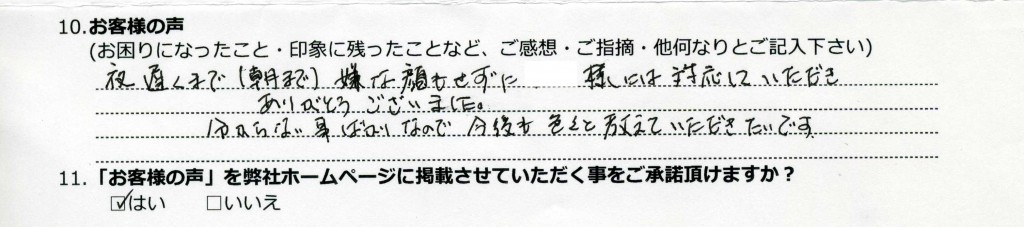 10.お客様の声
(お困りになったこと・印象に残ったことなど、ご感想・ご指摘・他何なりとご記入下さい)
夜遅くまで(朝まで)嫌な顔もせずに 様には対応していただき
ありがとうございました。
分からない事ばかりなので今後も色々と教えていただきたいです
11.「お客様の声」を弊社ホームページに掲載させていただく事をご承諾頂けますか？
☑はい □いいえ